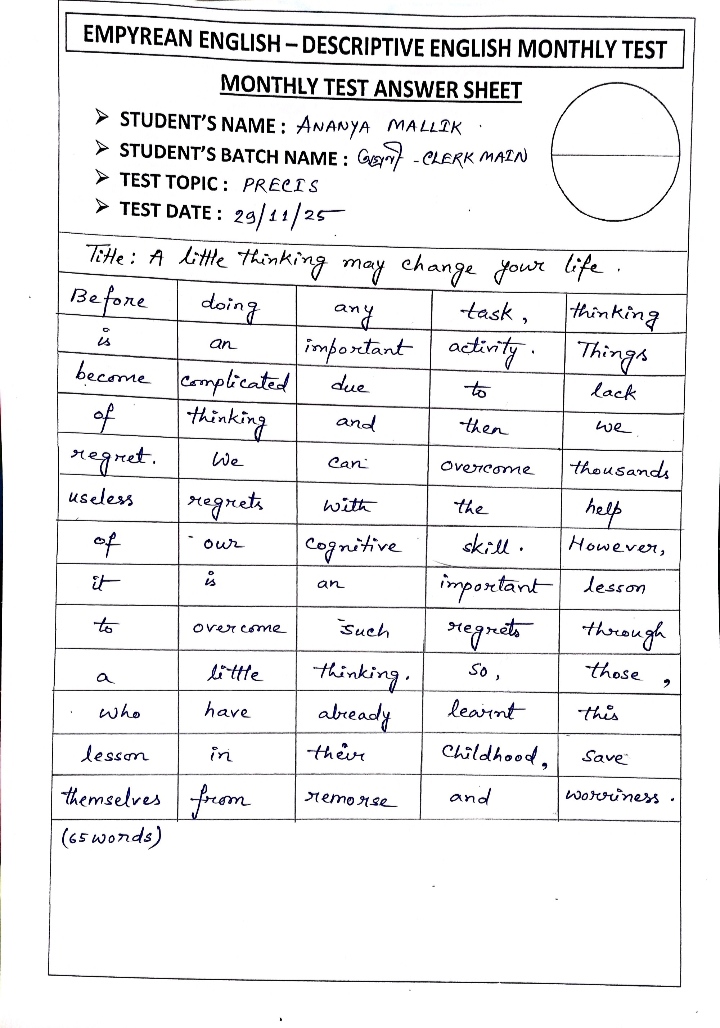 EMPYREAN ENGLISH – DESCRIPTIVE ENGLISH MONTHLY TEST
MONTHLY TEST ANSWER SHEET
➢ STUDENT'S NAME : ANANYA MALLIK
➢ STUDENT'S BATCH NAME : - CLERK MAIN
➢ TEST TOPIC : PRECIS
➢ TEST DATE : 29/11/25
Title : A little thinking may change your life .
Before doing any task, thinking
is an important activity. Things
become complicated due to lack
of thinking and then we
regret. We can overcome thousands
useless regrets with the help
of our cognitive skill. However,
it is an important lesson
to overcome such regrets through
a little thinking. So, those,
who have already learnt this
lesson in their childhood, save
themselves from remorse and worriness.
(65 words)